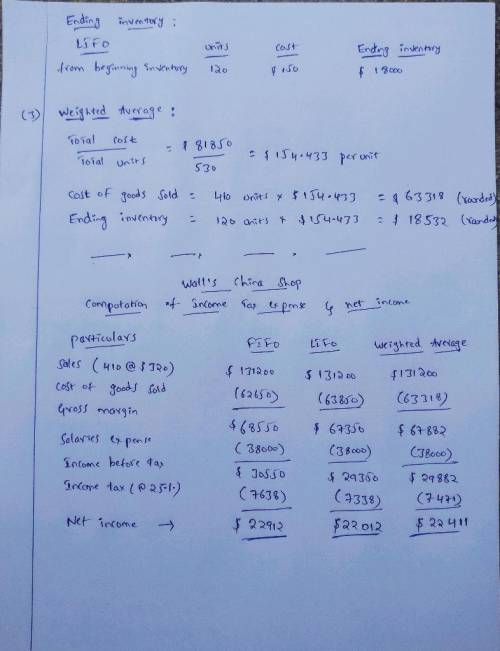 Ending inventory :
LIFO units cost Ending inventory
from beginning inventory 120 $ 150 $ 18000
(3) Weighted Average :
Total cost / Total units = $ 81850 / 530 = $ 154.433 per unit
Cost of goods sold = 410 units × $ 154.433 = $ 63318 (rounded)
Ending inventory = 120 units × $ 154.433 = $ 18532 (rounded)
Wall's China Shop
Computation of Income Tax expense & net income
Particulars FIFO LIFO Weighted Average
Sales (410 @ $ 320) $ 131200 $ 131200 $ 131200
Cost of goods sold (62650) (63850) (63318)
Gross margin $ 68550 $ 67350 $ 67882
Salaries expense (38000) (38000) (38000)
Income before tax $ 30550 $ 29350 $ 29882
Income tax (@ 25%) (7638) (7338) (7471)
Net income → $ 22912 $ 22012 $ 22411